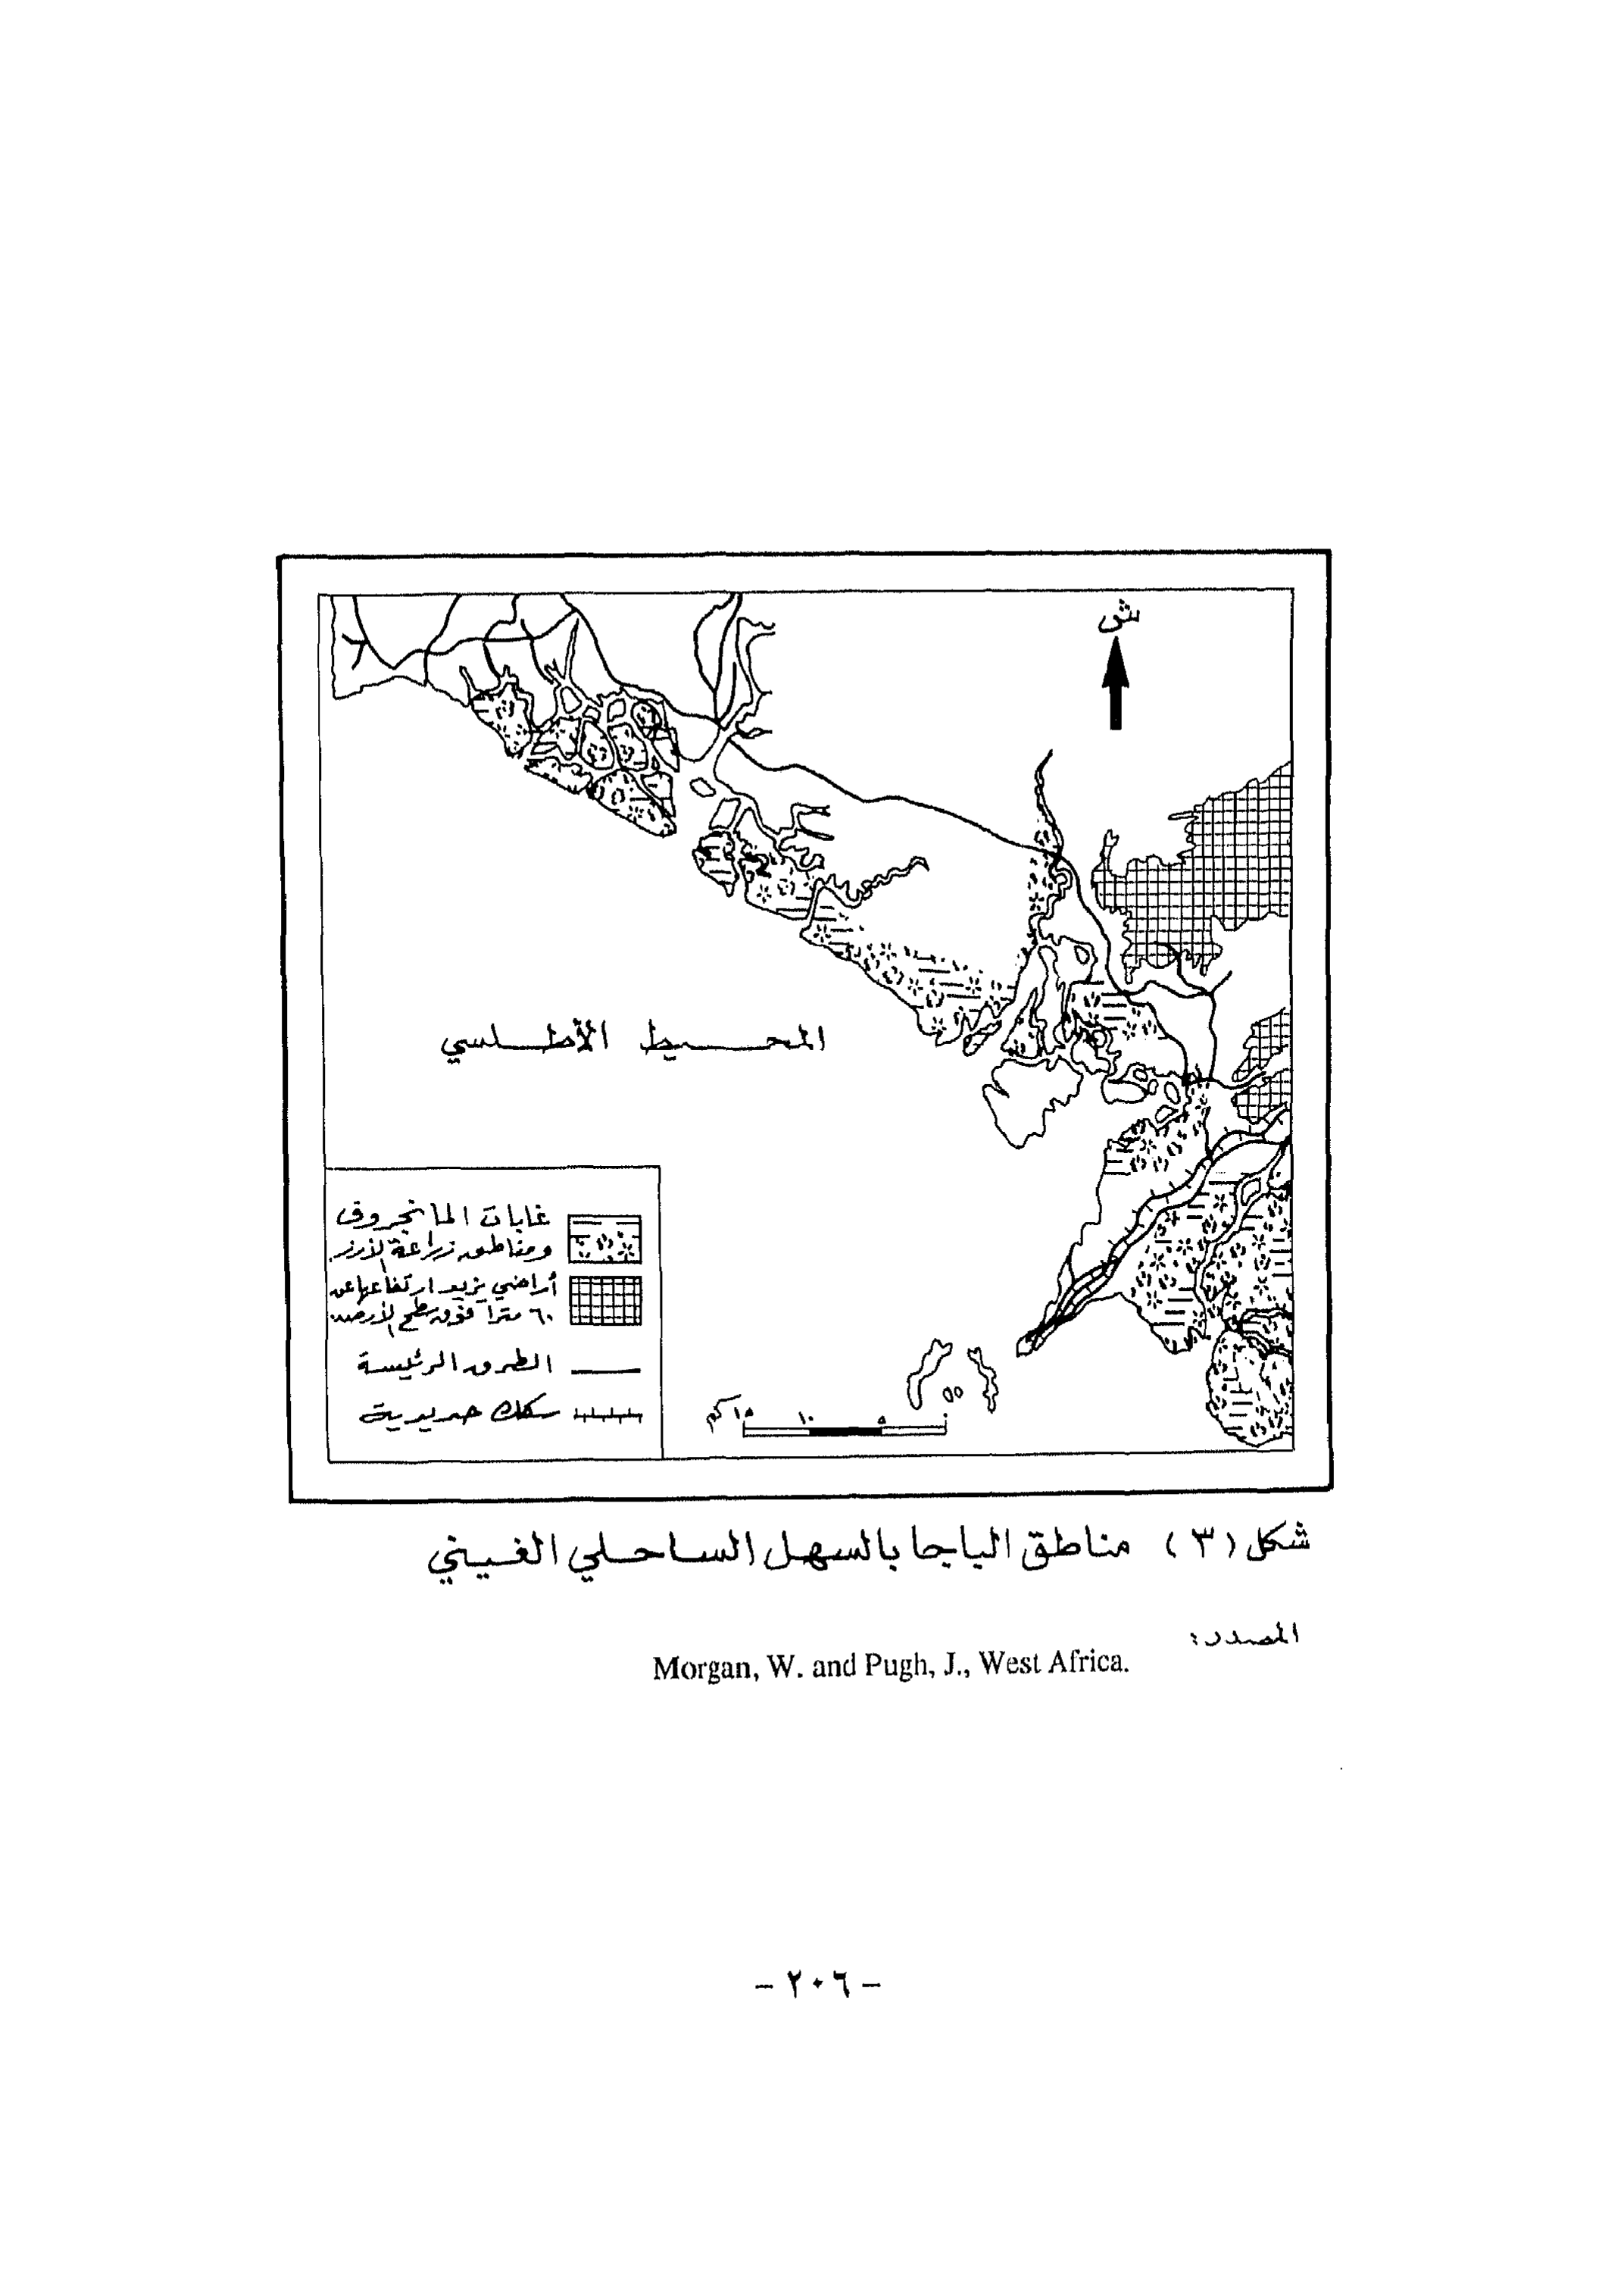 ش
المحيط الأطلسي
غابات المانجروف
ومناطق زراعة الأرز
أراضي يزيد ارتفاعها عن
٦٠ مترا فوق سطح الأرض
الطرق الرئيسة
سكك حديدية
٠ ٥ ١٠ ١٥ كم
شكل (٣) مناطق الباجا بالسهل الساحلي الغيني
المصدر:
Morgan, W. and Pugh, J., West Africa.
- ٢٠٦ -